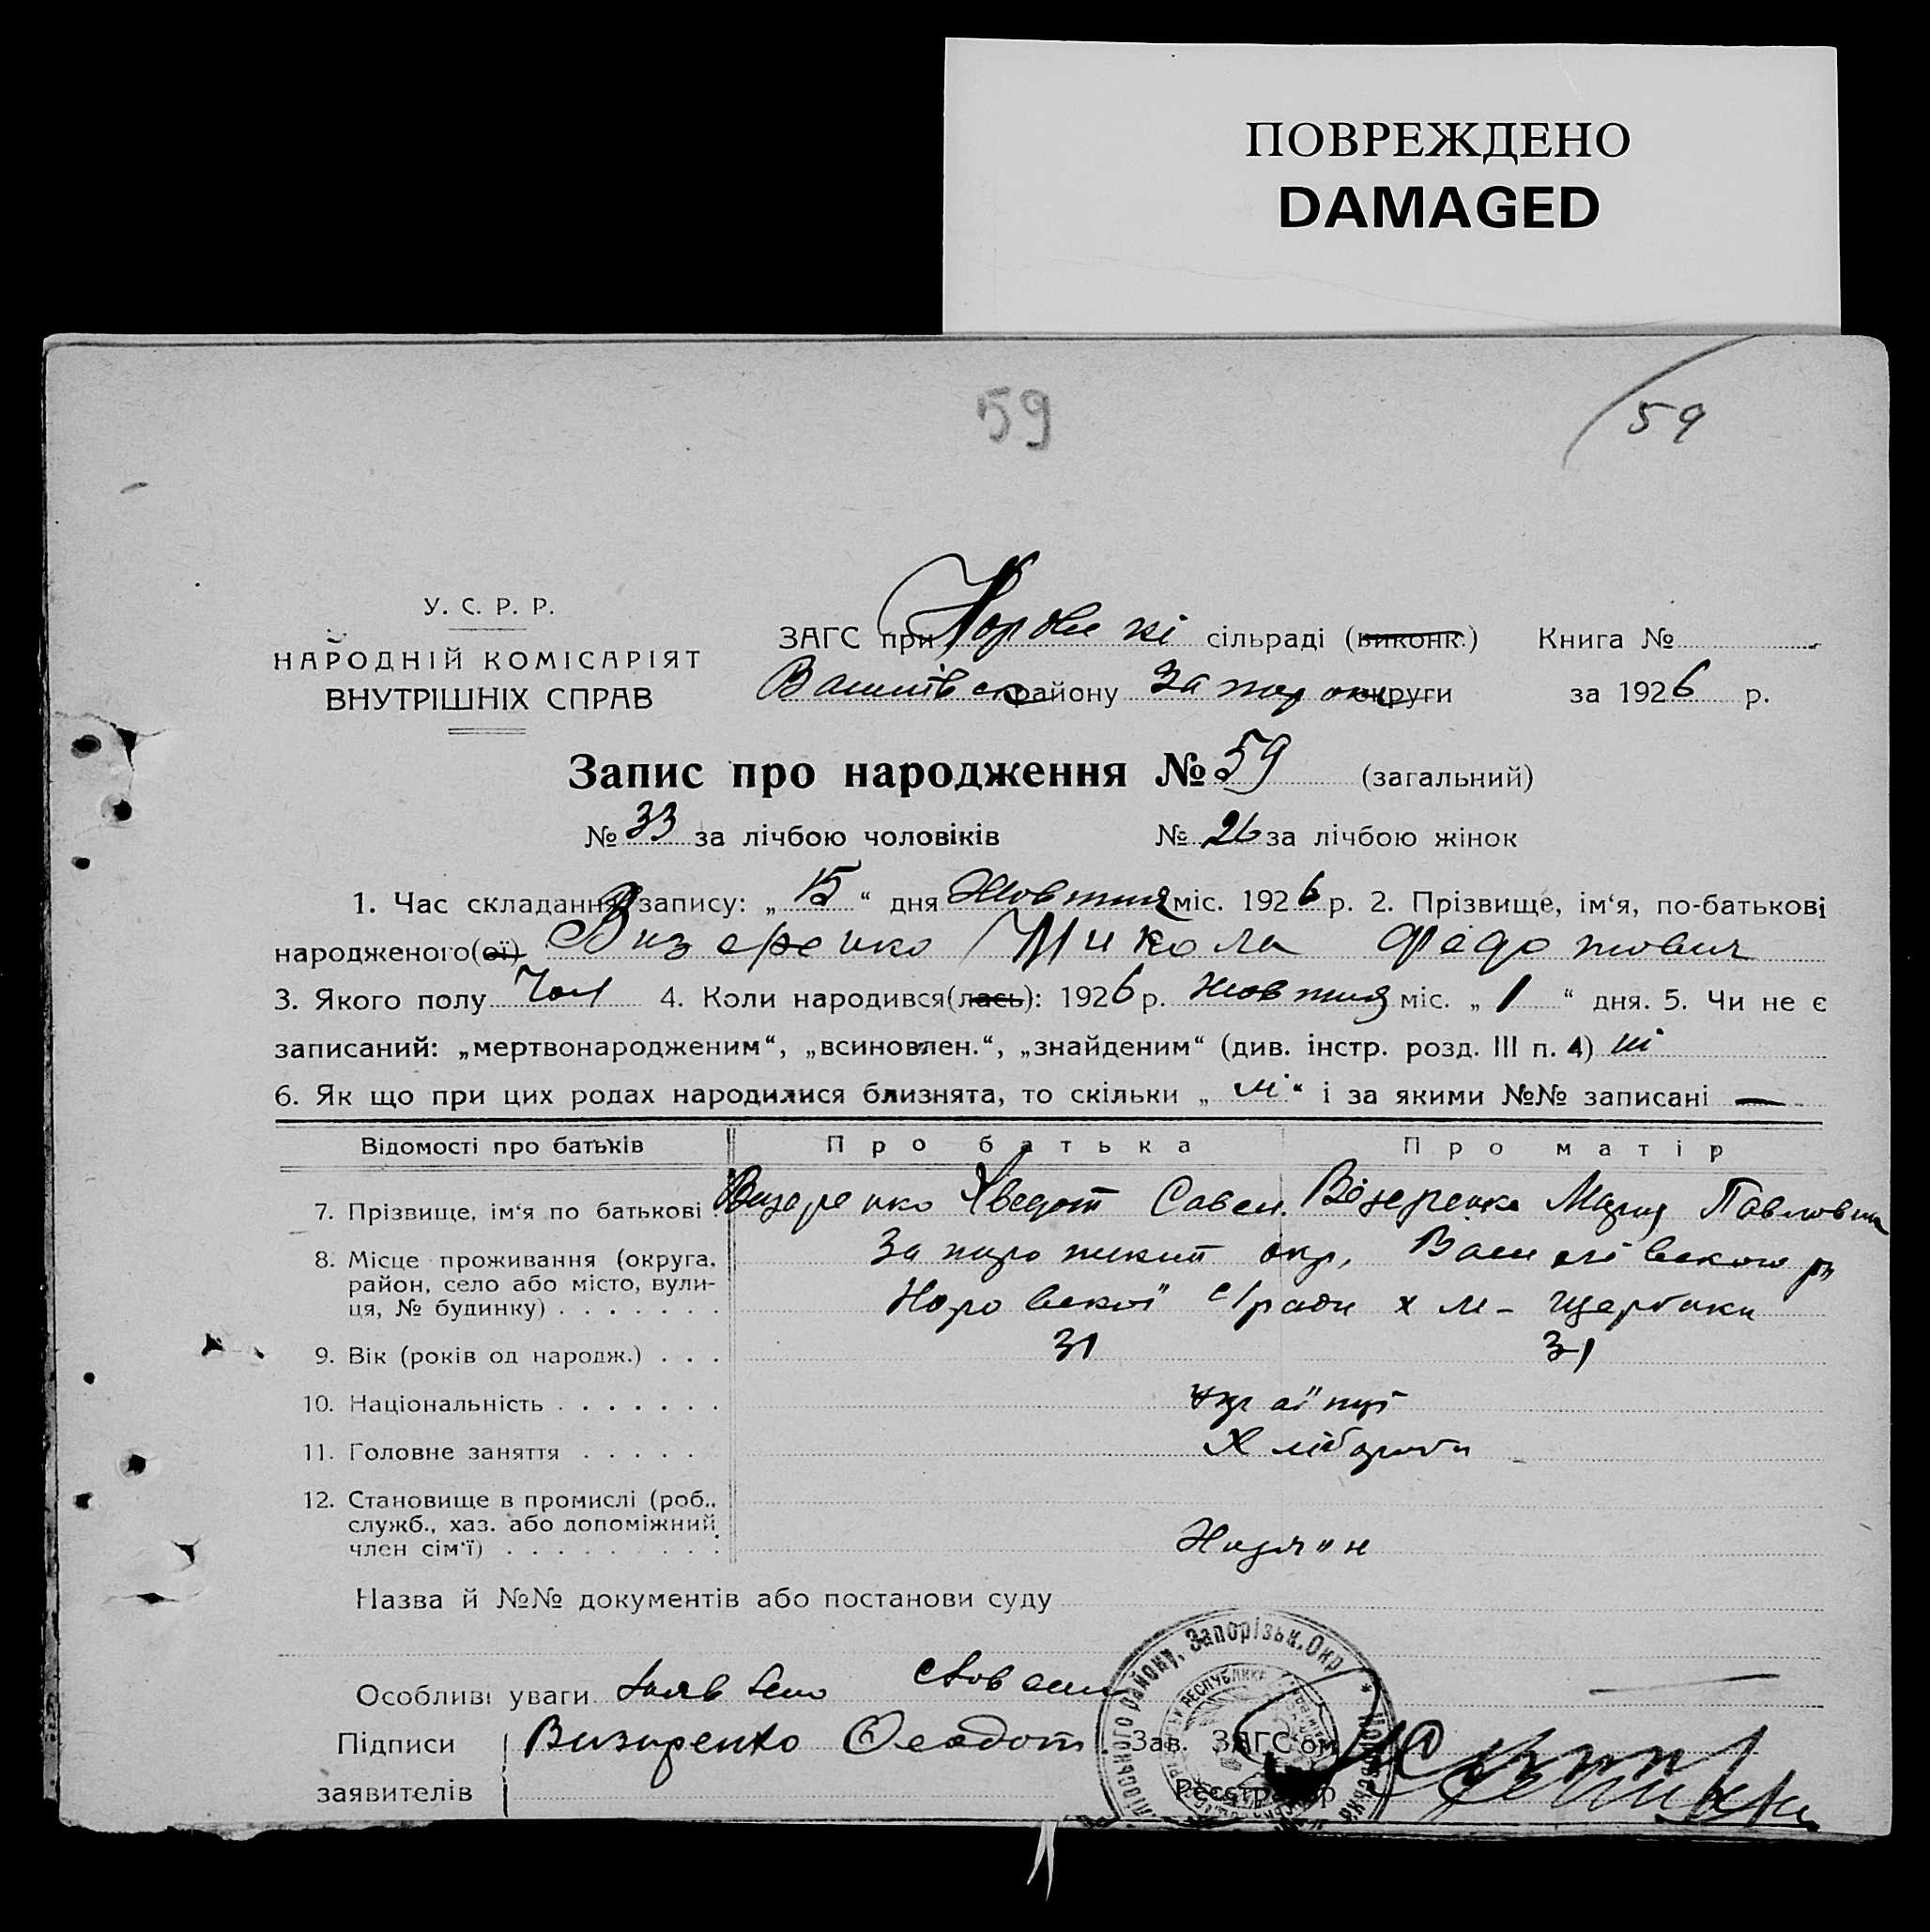 ПОВРЕЖДЕНО
DAMAGED
59
59
У. С. Р. Р.
НАРОДНІЙ КОМІСАРІЯТ
ВНУТРІШНІХ СПРАВ
ЗАГС при сільраді (виконк.) Книга №
району округи за 1926 р.
Запис про народження № 59 (загальний)
№ 33 за лічбою чоловіків № 26 за лічбою жінок
1. Час складання запису: „ 15 “ дня Жовтня міс. 1926 р. 2. Прізвище, ім‘я, по-батькові
народженого(ої) Визеренко Микола Федотович
3. Якого полу Чол 4. Коли народився(лась): 1926 р. Жовтня міс. „ 1 “ дня. 5. Чи не є
записаний: „мертвонародженим“, „всиновлен.“, „знайденим“ (див. інстр. розд. III п. 4) ні
6. Як що при цих родах народилися близнята, то скільки „ ні “ і за якими №№ записані —
Відомості про батьків Про батька Про матір
7. Прізвище, ім‘я по батькові Визеренко Хведот Савел. Візеренко Мария Павловна
8. Місце проживання (округа, окр,
район, село або місто, вули-
ця, № будинку) . . . . . . . с/ради х Щербаки
9. Вік (років од народж.) . . . 31 31
10. Національність . . . . . . . українці
11. Головне заняття . . . . . Хлібороби
12. Становище в промислі (роб.,
служб., хаз. або допоміжний
член сім‘ї) . . . . . . . . .
Назва й №№ документів або постанови суду
Особливі уваги
Підписи Визиренко Феодот Зав. ЗАГС‘ом
заявителів Реєстратор
лівського району, Запорізьк. Окр